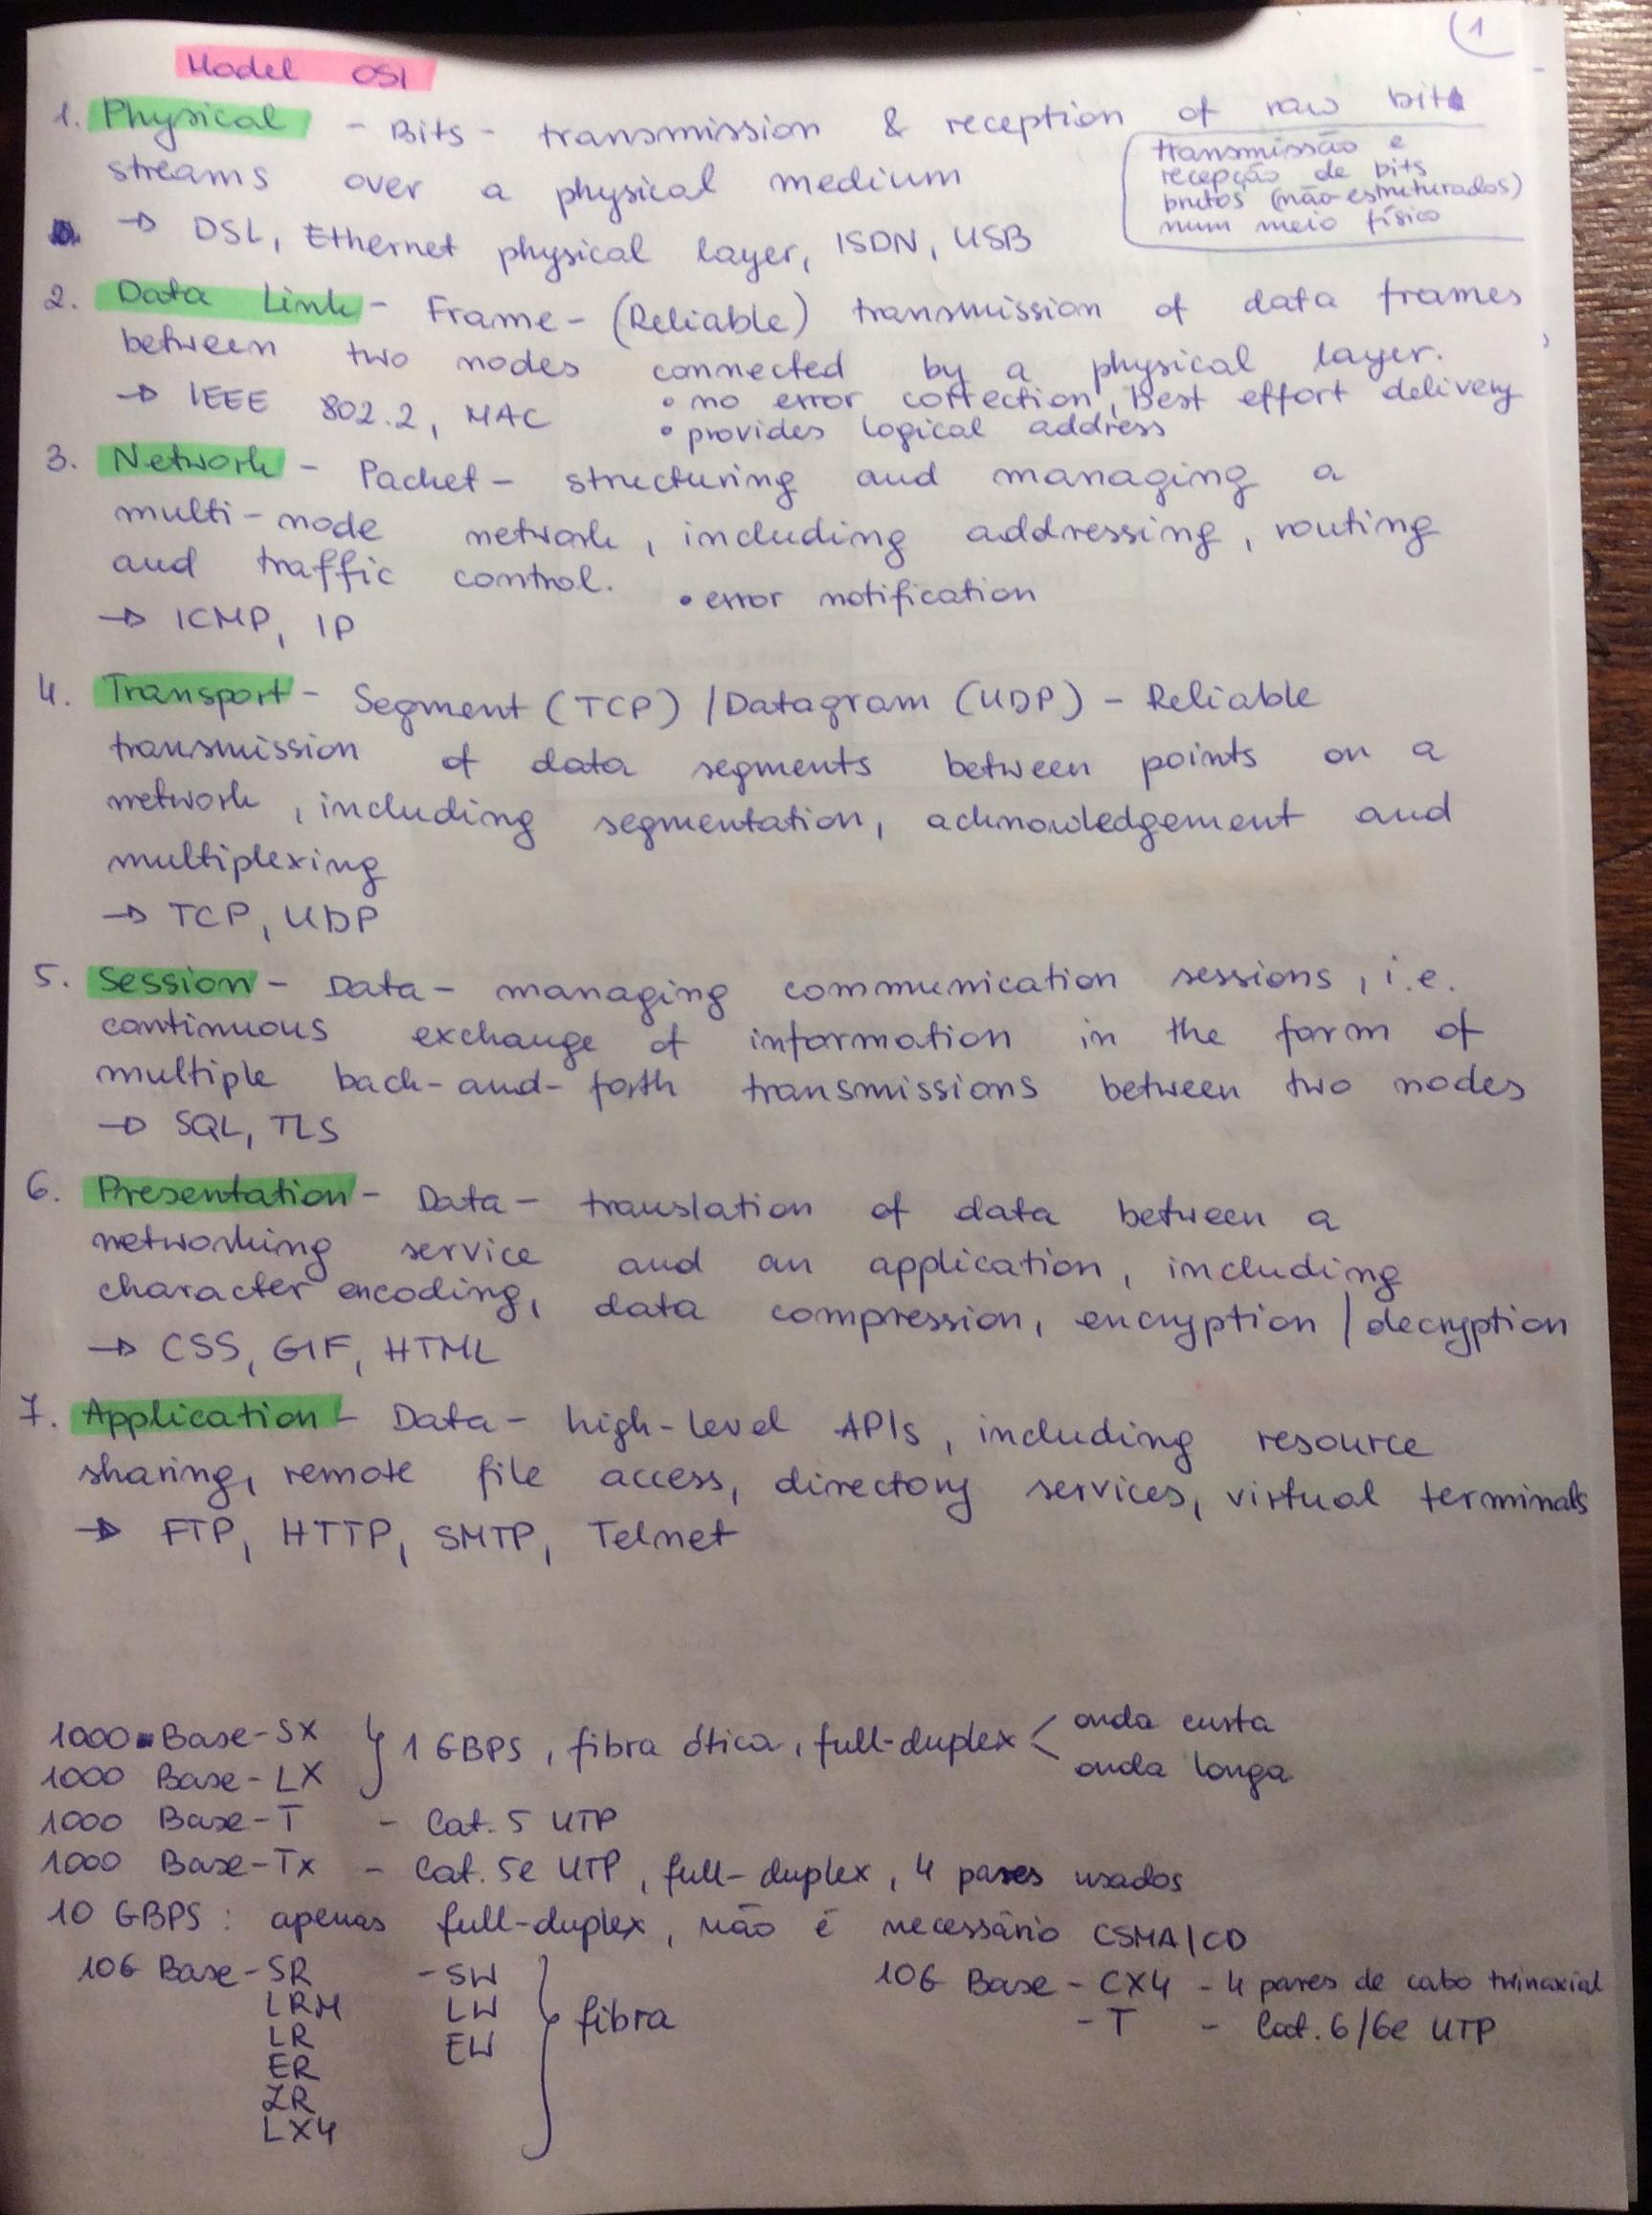 1
Model OSI
1. Physical - Bits - transmission & reception of raw bit
streams over a physical medium
transmissão e
recepção de bits
brutos (não-estruturados)
num meio físico
→ DSL, Ethernet physical layer, ISDN, USB
2. Data Link - Frame - (Reliable) transmission of data frames
between two nodes connected by a physical layer.
→ IEEE 802.2, MAC
• no error correction, best effort delivery
• provides logical address
3. Network - Packet - structuring and managing a
multi-node network, including addressing, routing
and traffic control. • error notification
→ ICMP, IP
4. Transport - Segment (TCP) / Datagram (UDP) - Reliable
transmission of data segments between points on a
network, including segmentation, acknowledgement and
multiplexing
→ TCP, UDP
5. Session - Data - managing communication sessions, i.e.
continuous exchange of information in the form of
multiple back-and-forth transmissions between two nodes
→ SQL, TLS
6. Presentation - Data - translation of data between a
networking service and an application, including
character encoding, data compression, encryption / decryption
→ CSS, GIF, HTML
7. Application - Data - high-level APIs, including resource
sharing, remote file access, directory services, virtual terminals
→ FTP, HTTP, SMTP, Telnet
1000 Base-SX } 1 GBPS, fibra ótica, full-duplex < onda curta
1000 Base-LX onda longa
1000 Base-T - Cat. 5 UTP
1000 Base-Tx - Cat. 5e UTP, full-duplex, 4 pares usados
10 GBPS: apenas full-duplex, não é necessário CSMA/CD
10G Base-SR -SW
LRM LW } fibra
LR EW
ER
ZR
LX4
10G Base - CX4 - 4 pares de cabo twinaxial
- T - Cat. 6/6e UTP